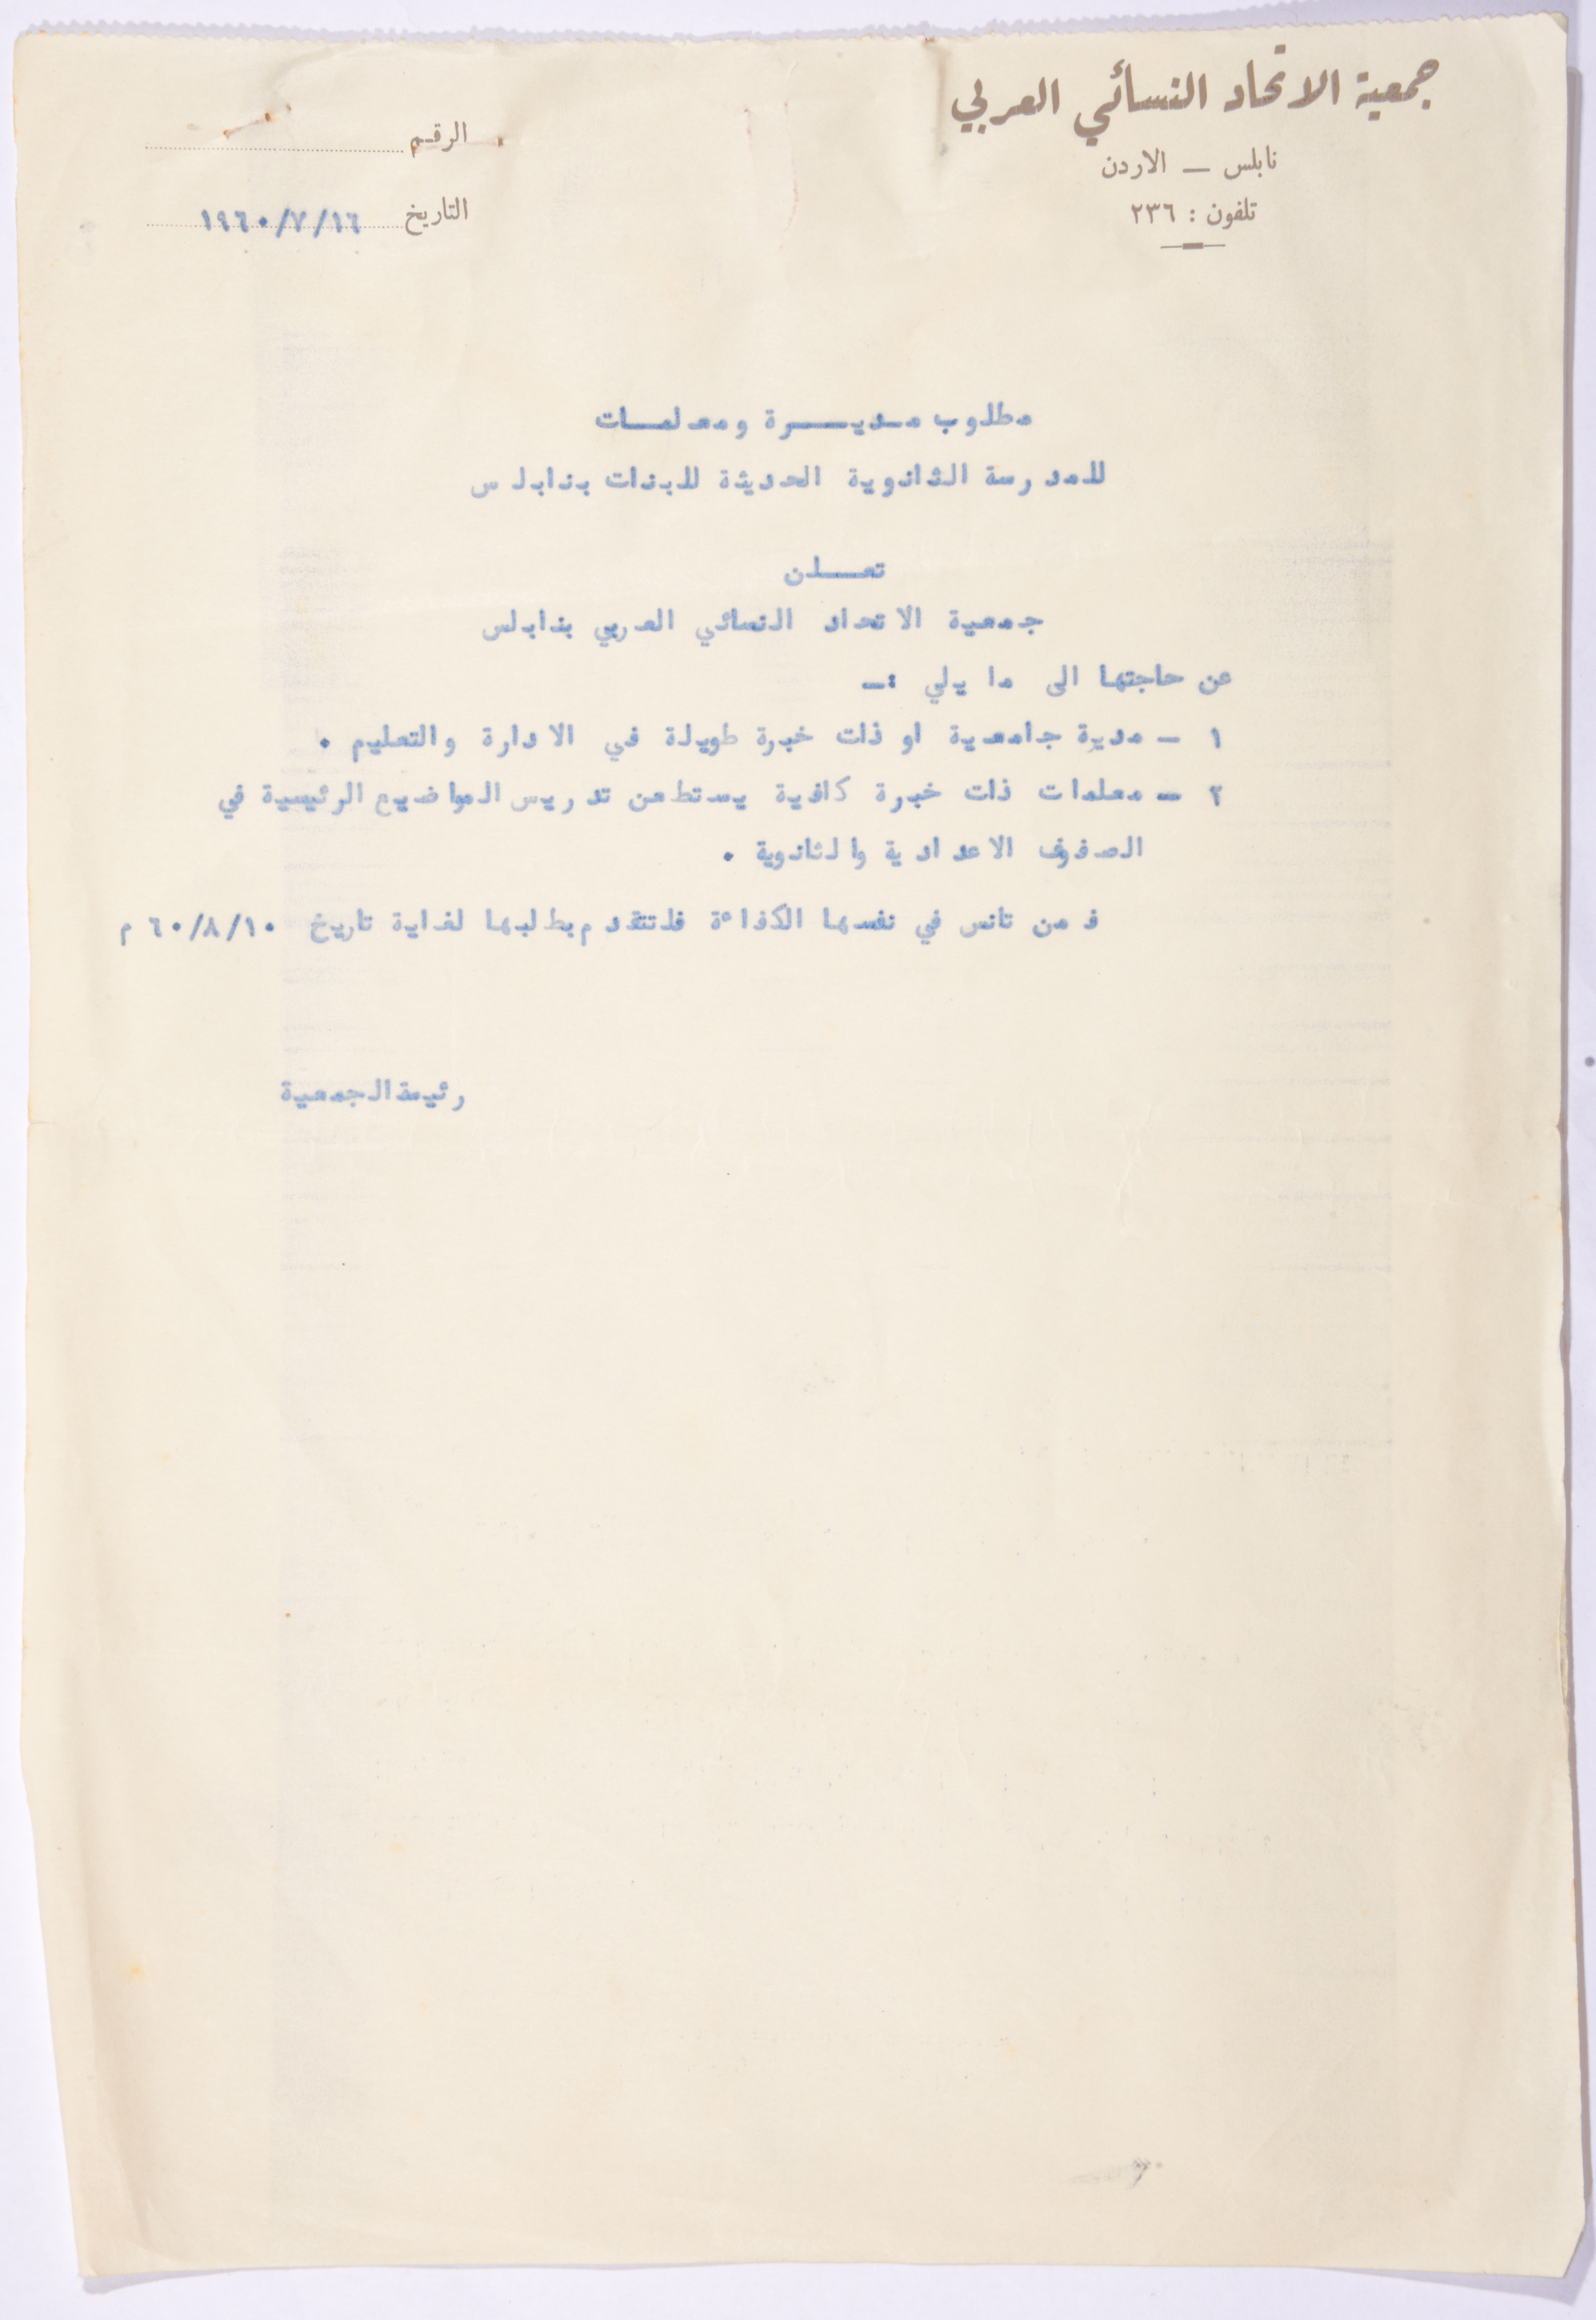 جمعية الاتحاد النسائي العربي
نابلس — الاردن
تلفون : ٢٣٦
الرقم
التاريخ ١٩٦٠/٧/١٦
مطلوب مديرة ومعلمات
للمدرسة الثانوية الحديثة للبنات بنابلس
تعلن
جمعية الاتحاد النسائي العربي بنابلس
عن حاجتها الى ما يلي :—
١ — مديرة جامعية او ذات خبرة طويلة في الادارة والتعليم .
٢ — معلمات ذات خبرة كافية يستطعن تدريس المواضيع الرئيسية في
الصفوف الاعدادية والثانوية .
فمن تانس في نفسها الكفاءة فلتتقدم بطلبها لغاية تاريخ ٦٠/٨/١٠ م
رئيسة الجمعية